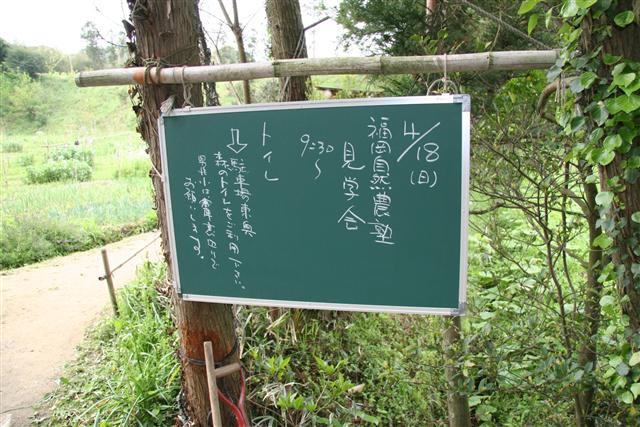 4/18(日)
福岡自然農塾
見学会
9:30〜
トイレ
⇨駐車場の東奥
森のトイレをご利用下さい。
お願いします。